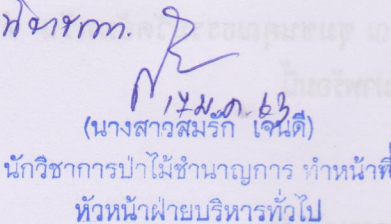 17 ม.ค. 63
(นางสาวสมรัก เจนดี)
นักวิชาการป่าไม้ชำนาญการ ทำหน้าที่
หัวหน้าฝ่ายบริหารทั่วไป